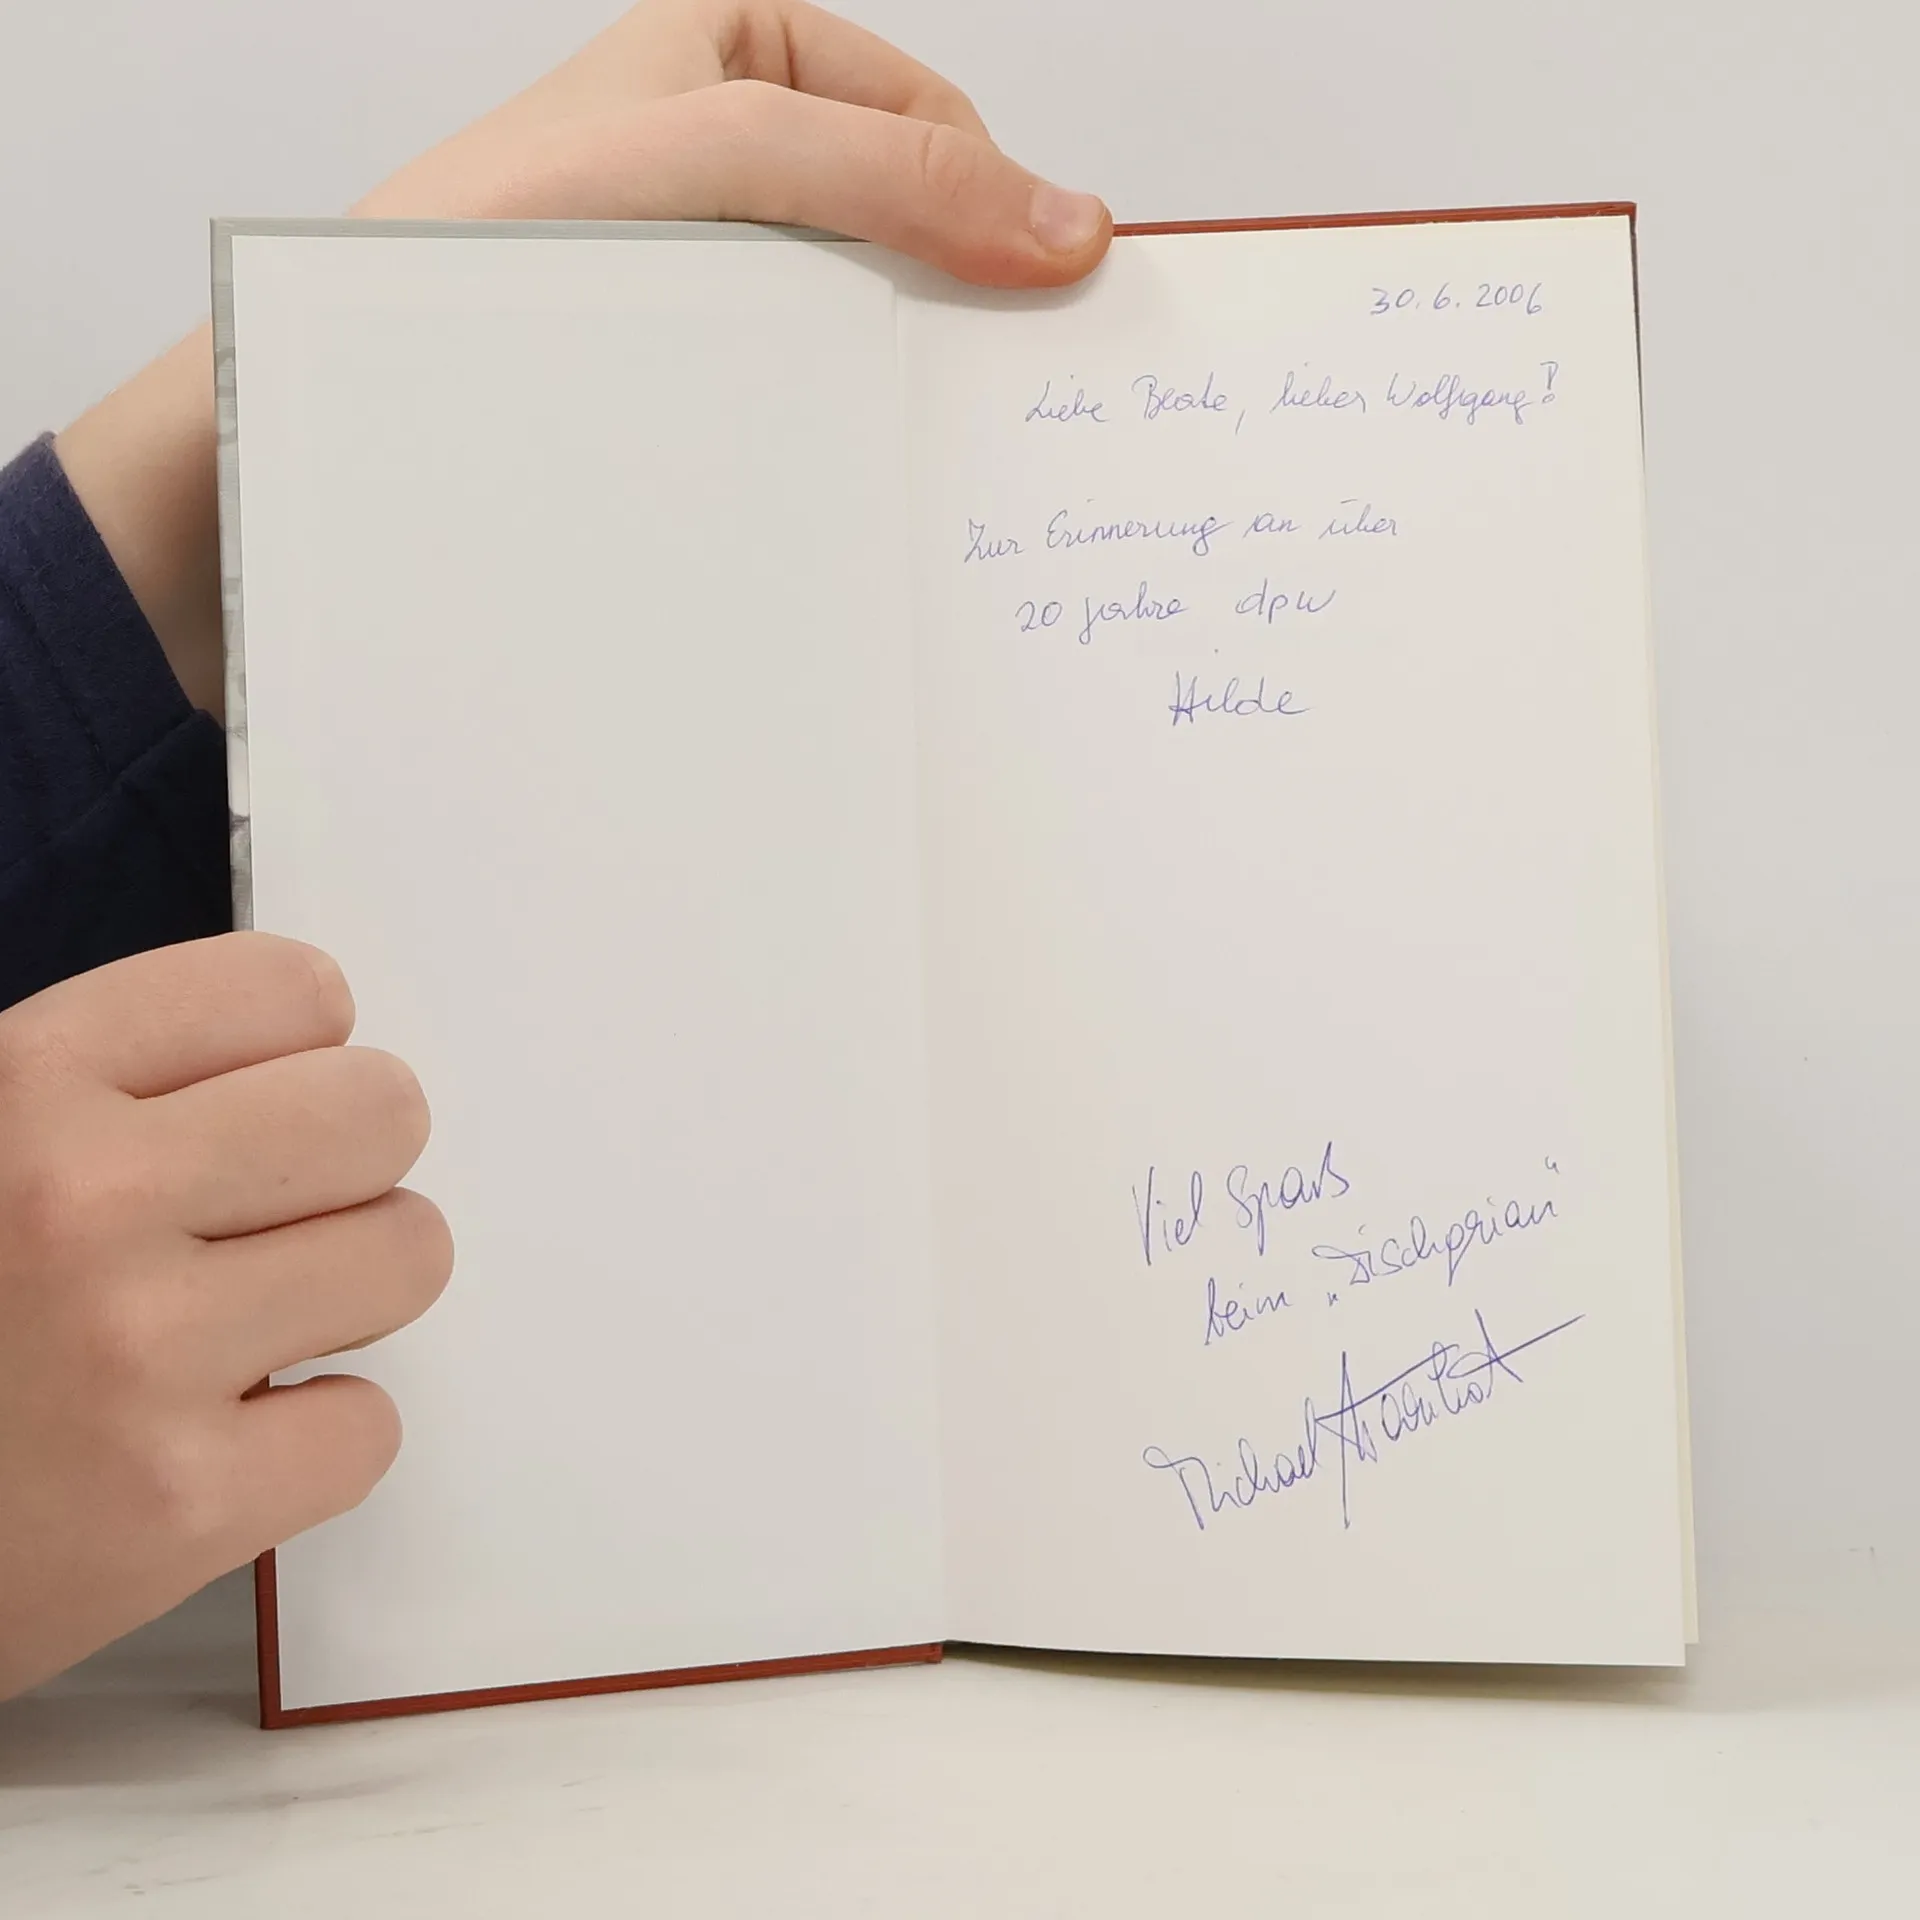 30.6.2006
Liebe Beate, lieber Wolfgang!
Zur Erinnerung an über
20 Jahre dpw
Hilde
Viel Spaß
beim „Dischgrian“
Michael